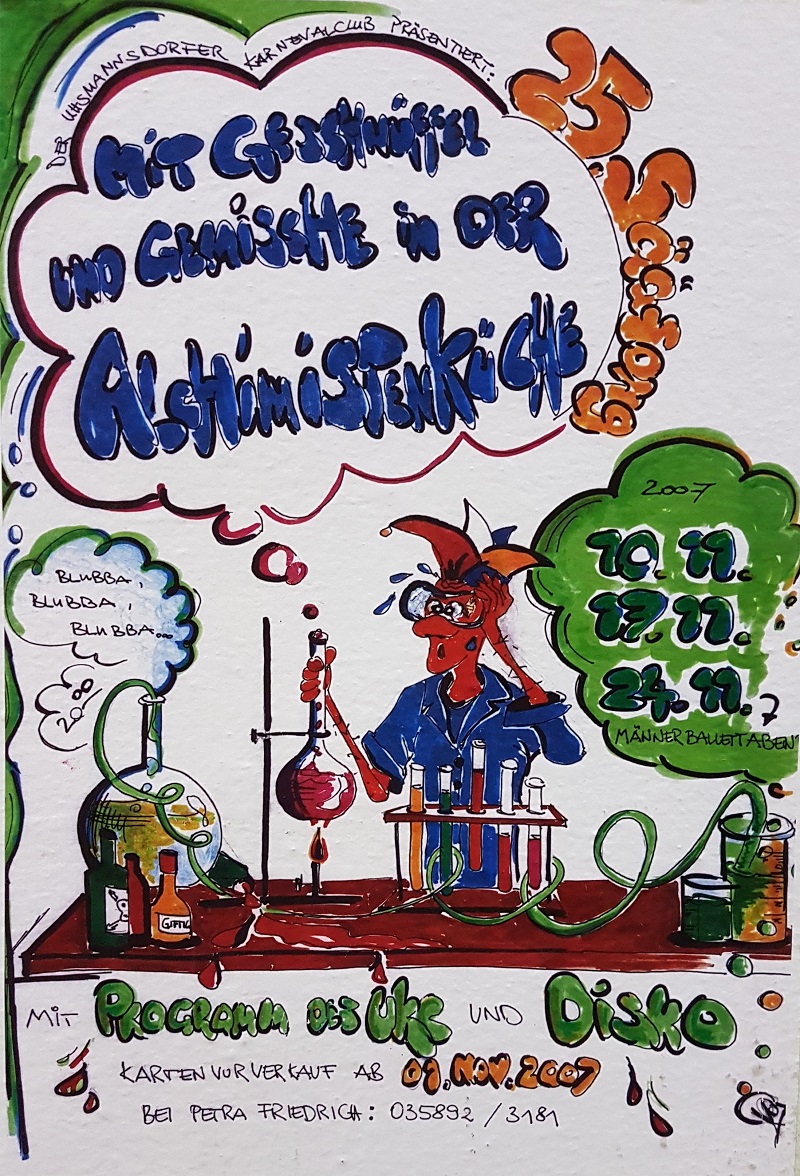 DER UHSMANNSDORFER KARNEVALCLUB PRÄSENTIERT:
25. Säàsong
MIT GESCHNÜFFEL
UND GEMISCHE IN DER
ALCHIMISTENKÜCHE
2007
10. 11.
17. 11.
24. 11.
MÄNNERBALLETTABEN
BLUBBA,
BLUBBA,
BLUBBA...
20:00
GIFTIG
MIT PROGRAMM DES UKC UND DISKO
KARTENVORVERKAUF AB 01.NOV.2007
BEI PETRA FRIEDRICH: 035892 / 3181